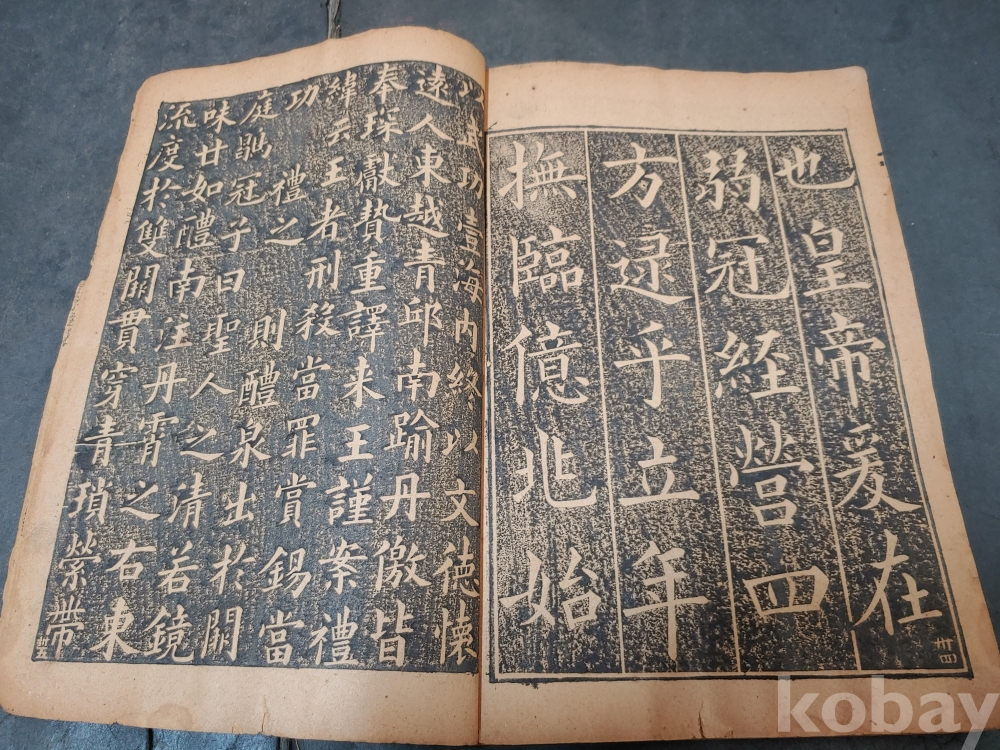 也皇帝爰在
弱冠経營四
方逮乎立年
撫臨億兆始
以武功壹海内終以文德懷
遠人東越青邱南踰丹徼皆
奉琛獻贄重譯来王謹案禮
緯云王者刑殺當罪賞錫當
功禮之則醴泉出於闕
庭鶡冠子曰聖人之清若鏡
味甘如醴南注丹霄之右東
流度於雙闕貫穿青瑣縈帶
kobay